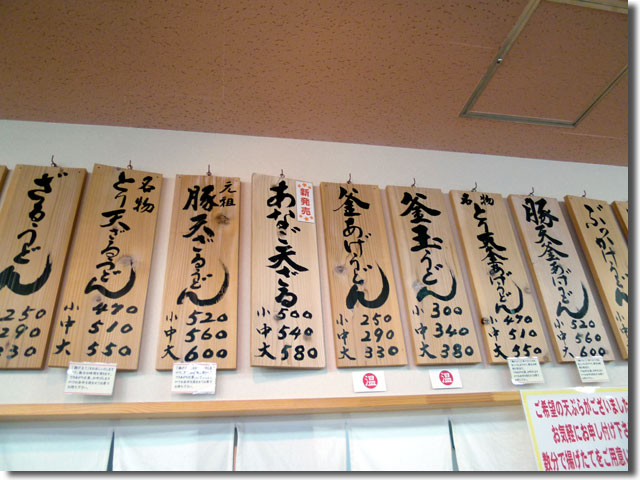 ざるうどん
250
290
330
名物
とり天ざるうどん
小 470
中 510
大 550
元祖
豚天ざるうどん
小 520
中 560
大 600
新発売
あなご天ざる
小 500
中 540
大 580
釜あげうどん
小 250
中 290
大 330
釜玉うどん
小 300
中 340
大 380
名物
とり天釜あげうどん
小 470
中 510
大 550
豚天釜あげうどん
小 520
中 560
大 600
ぶっかけうどん
温
温
ご希望の天ぷらがございました
お気軽にお申し付け下さ
数分で揚げたてをご用意い